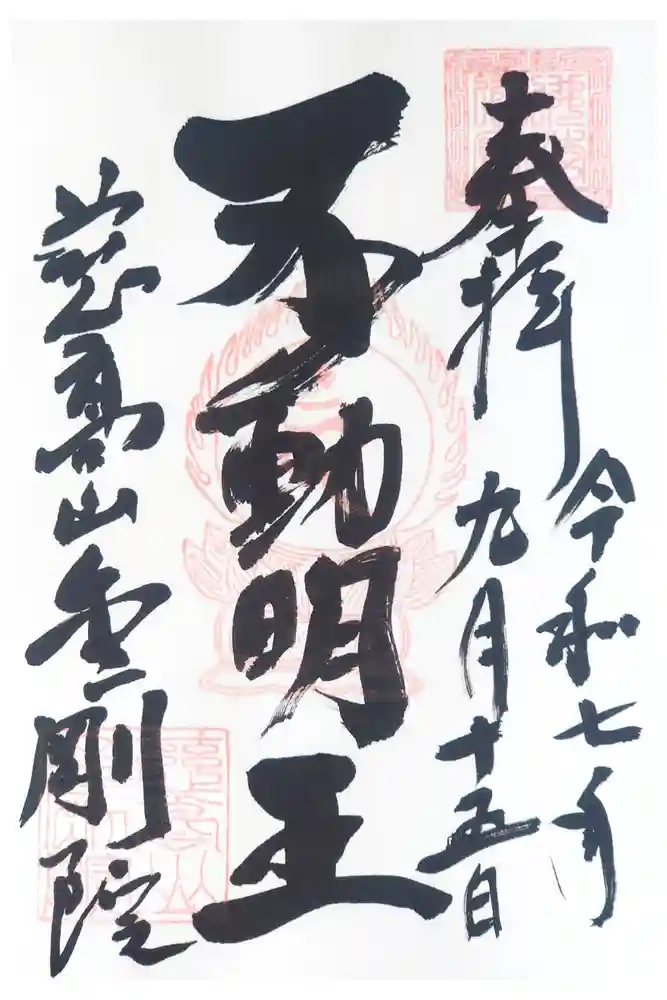 奉拝
令和七年
九月十五日
不動明王
慈高山金剛院